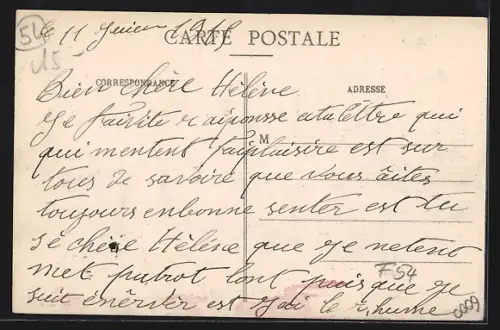 54
15
le 11 1915
CARTE POSTALE
CORRESPONDANCE
ADRESSE
M
Bien chère Hélène
Je faivite réaiponsse atalêttre qui
qui mentent faiplaisire est sur
tous de savoire que vous âites
toujours enbonne senter est tu
sé chère Hélène que ge netent
met patrot lont puisque ge
suit énêrvér est gai le rhume
F54
0009